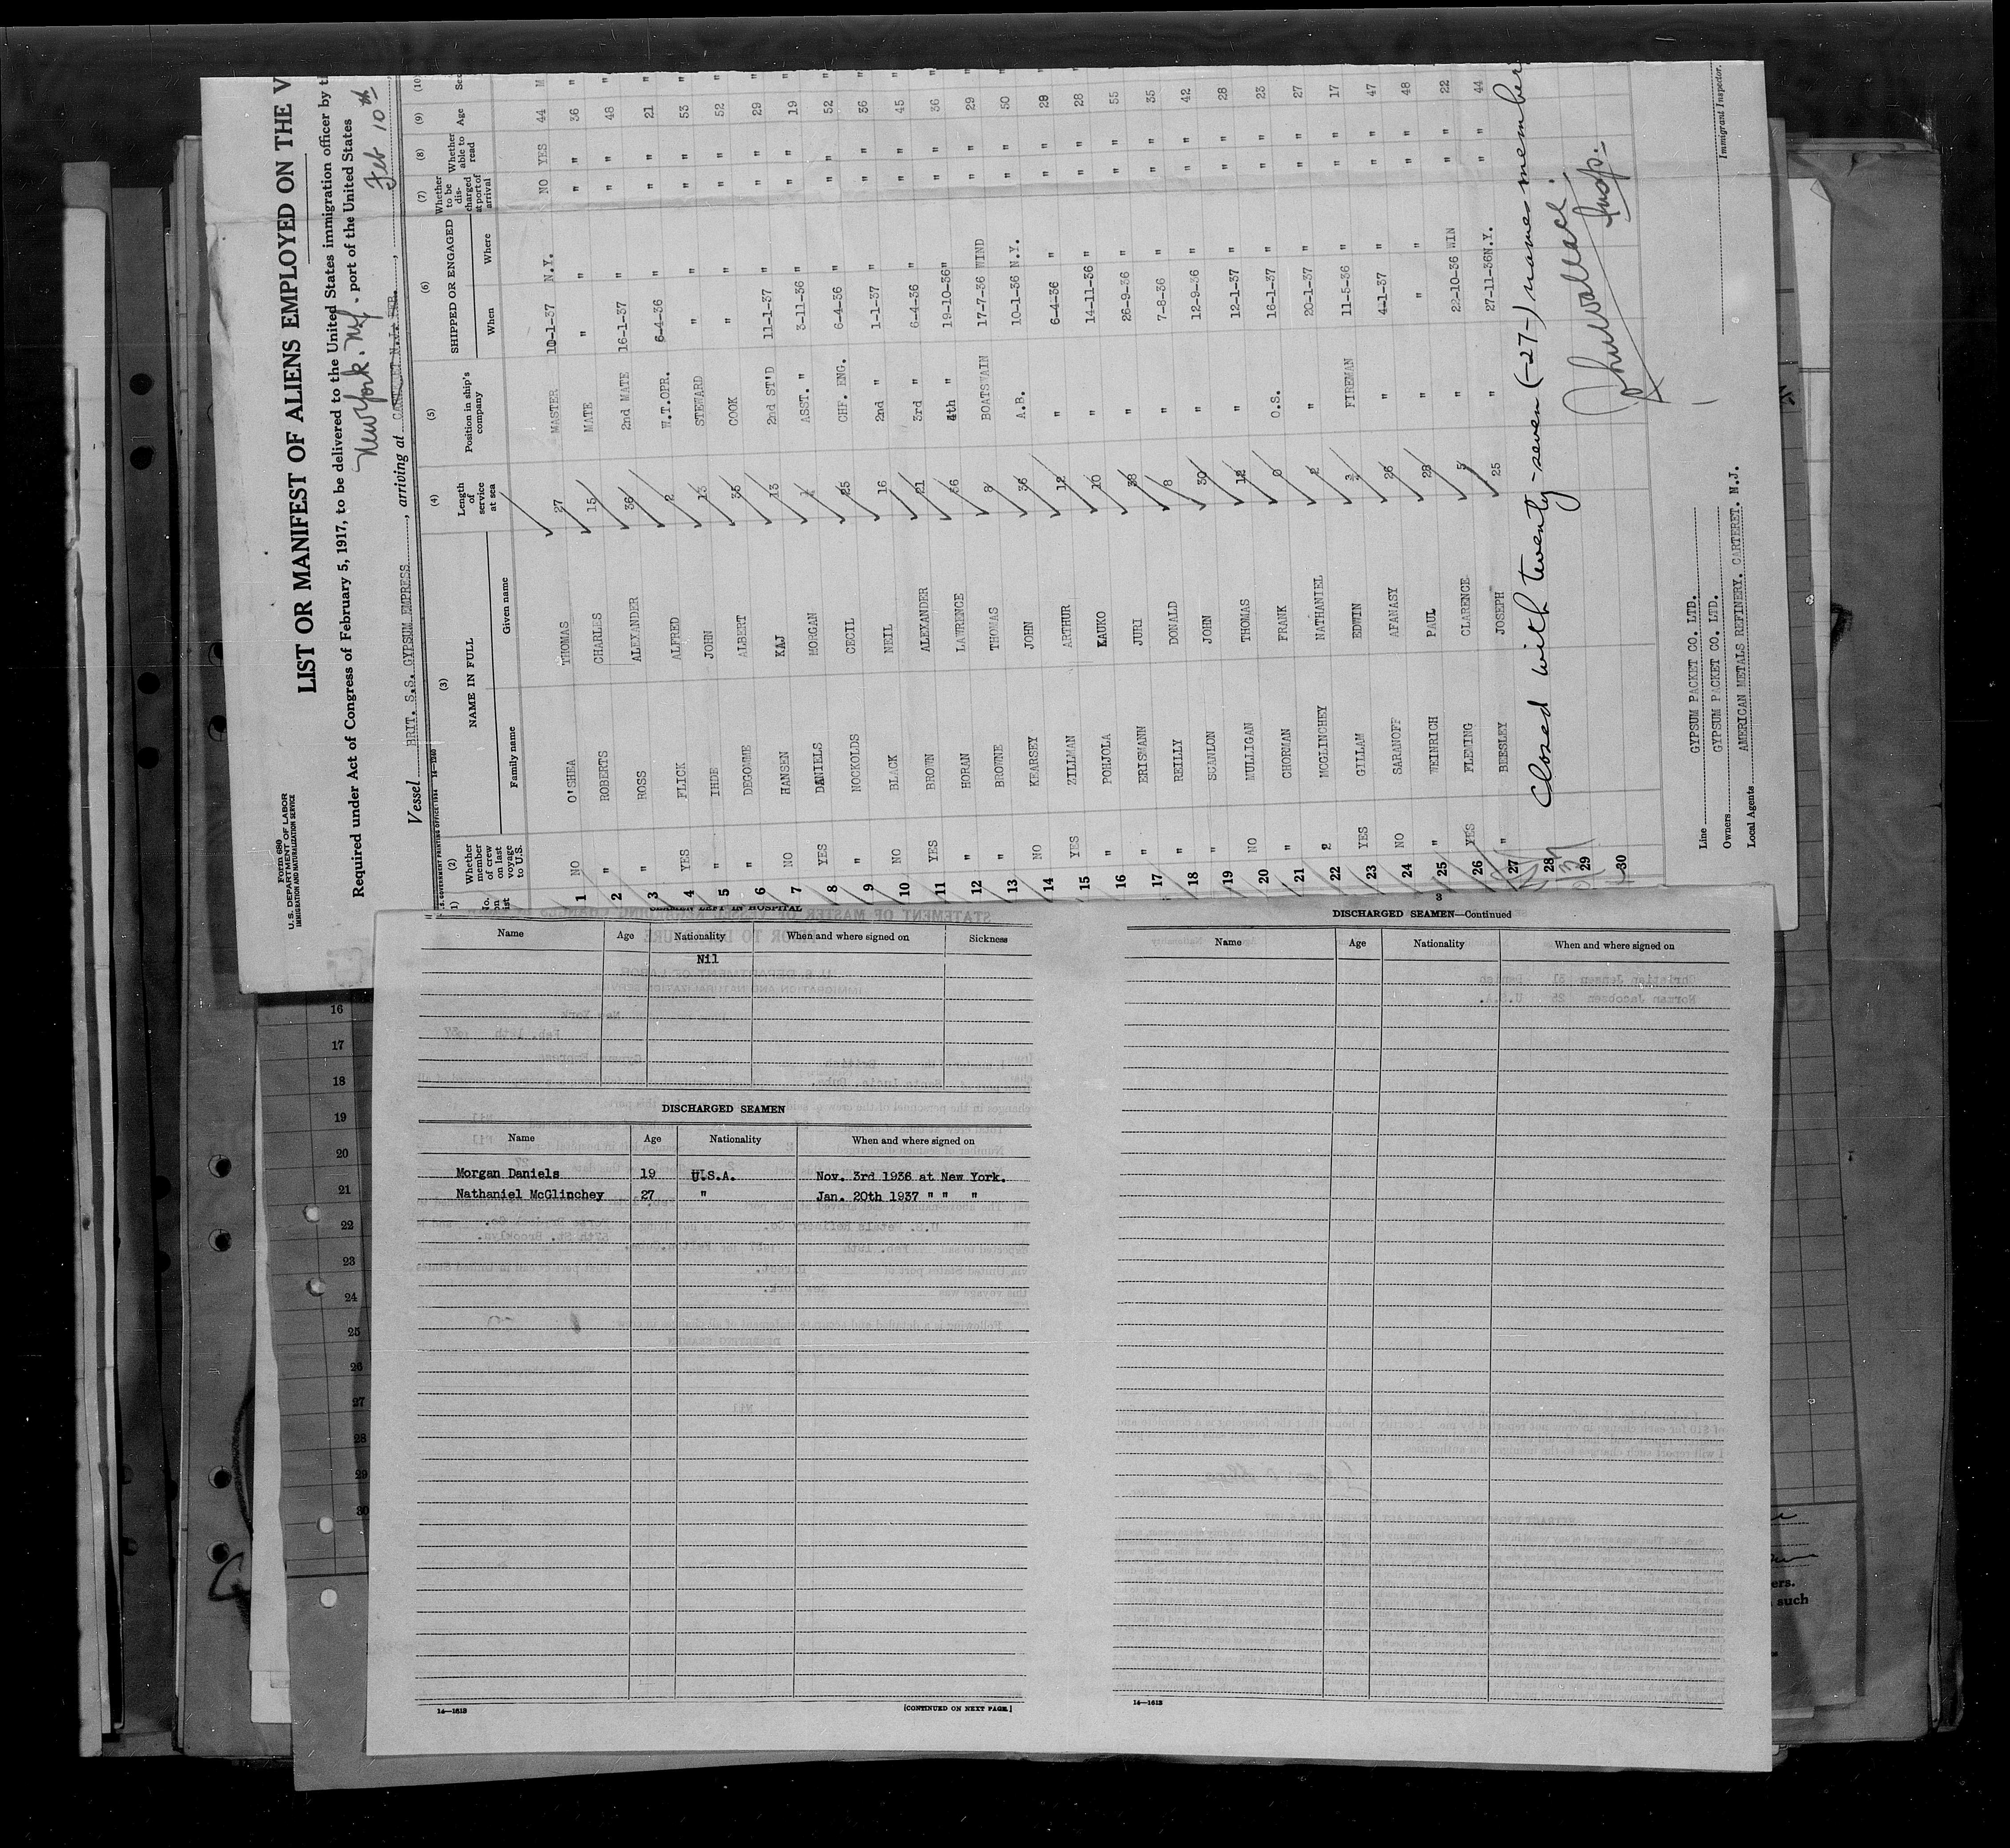 Form 680
U.S. DEPARTMENT OF LABOR
IMMIGRATION AND NATURALIZATION SERVICE
LIST OR MANIFEST OF ALIENS EMPLOYED ON THE V
Required under Act of Congress of February 5, 1917, to be delivered to the United States immigration officer by th
New York, NY. port of the United States
Vessel BRIT. S.S. GYPSUM EMPRESS, arriving at CARTERET N.J. FEB. Feb 10th
S. GOVERNMENT PRINTING OFFICE: 1934 14—1240
(2) (3) (4) (5) (6) (7) (8) (9) (10
No. on list Whether member of crew on last voyage to U.S. NAME IN FULL Family name Given name Length of service at sea Position in ship's company SHIPPED OR ENGAGED When Where Whether to be discharged at port of arrival Whether able to read Age Sex
1 NO O'SHEA THOMAS 27 MASTER 10-1-37 N.Y. NO YES 44 M
2 " ROBERTS CHARLES 15 MATE " " " " 36 "
3 " ROSS ALEXANDER 36 2nd MATE 16-1-37 " " " 48 "
4 YES FLICK ALFRED 2 W.T.OPR. 6-4-36 " " " 21 "
5 " IHDE JOHN 13 STEWARD " " " " 53 "
6 " DEGOMME ALBERT 35 COOK " " " " 52 "
7 NO HANSEN KAJ 13 2nd ST'D 11-1-37 " " " 29 "
8 YES DANIELS MORGAN 1 ASST. " 3-11-36 " " " 19 "
9 " NOCKOLDS CECIL 25 CHF. ENG. 6-4-36 " " " 52 "
10 NO BLACK NEIL 16 2nd " 1-1-37 " " " 36 "
11 YES BROWN ALEXANDER 21 3rd " 6-4-36 " " " 45 "
12 " HORAN LAWRENCE 36 4th " 19-10-36 " " " 36 "
13 " BROWNE THOMAS 8 BOATSWAIN 17-7-36 WIND " " 29 "
14 NO KEARSEY JOHN 36 A.B. 10-1-36 N.Y. " " 50 "
15 YES ZILLMAN ARTHUR 12 " 6-4-36 " " " 28 "
16 " POHJOLA KAUKO 10 " 14-11-36 " " " 28 "
17 " ERISMANN JURI 38 " 26-9-36 " " " 55 "
18 " REILLY DONALD 8 " 7-8-36 " " " 35 "
19 " SCANLON JOHN 30 " 12-9-36 " " " 42 "
20 NO MULLIGAN THOMAS 12 " 12-1-37 " " " 28 "
21 " CHORMAN FRANK 0 O.S. 16-1-37 " " " 23 "
22 2 MCGLINCHEY NATHANIEL 2 " 20-1-37 " " " 27 "
23 YES GILLAM EDWIN 3 FIREMAN 11-5-36 " " " 17 "
24 NO SARANOFF AFANASY 26 " 4-1-37 " " " 47 "
25 " WEINRICH PAUL 28 " " " " " 48 "
26 YES FLEMING CLARENCE 5 " 22-10-36 WIN " " 22 "
27 " BEESLEY JOSEPH 25 " 27-11-36 N.Y. " " 44 "
28 Closed with twenty-seven (-27-) names members
29
30
Insp.
Line GYPSUM PACKET CO. LTD.
Owners GYPSUM PACKET CO. LTD.
Local Agents AMERICAN METALS REFINERY. CARTERET. N.J.
Immigrant Inspector.
SEAMEN LEFT IN HOSPITAL
Name Age Nationality When and where signed on Sickness
Nil
DISCHARGED SEAMEN
Name Age Nationality When and where signed on
Morgan Daniels 19 U.S.A. Nov. 3rd 1936 at New York.
Nathaniel McGlinchey 27 " Jan. 20th 1937 " " "
14—1613
[CONTINUED ON NEXT PAGE]
3
DISCHARGED SEAMEN—Continued
Name Age Nationality When and where signed on
14—1613
16
17
18
19
20
21
22
23
24
25
26
27
28
29
30
ers.
such